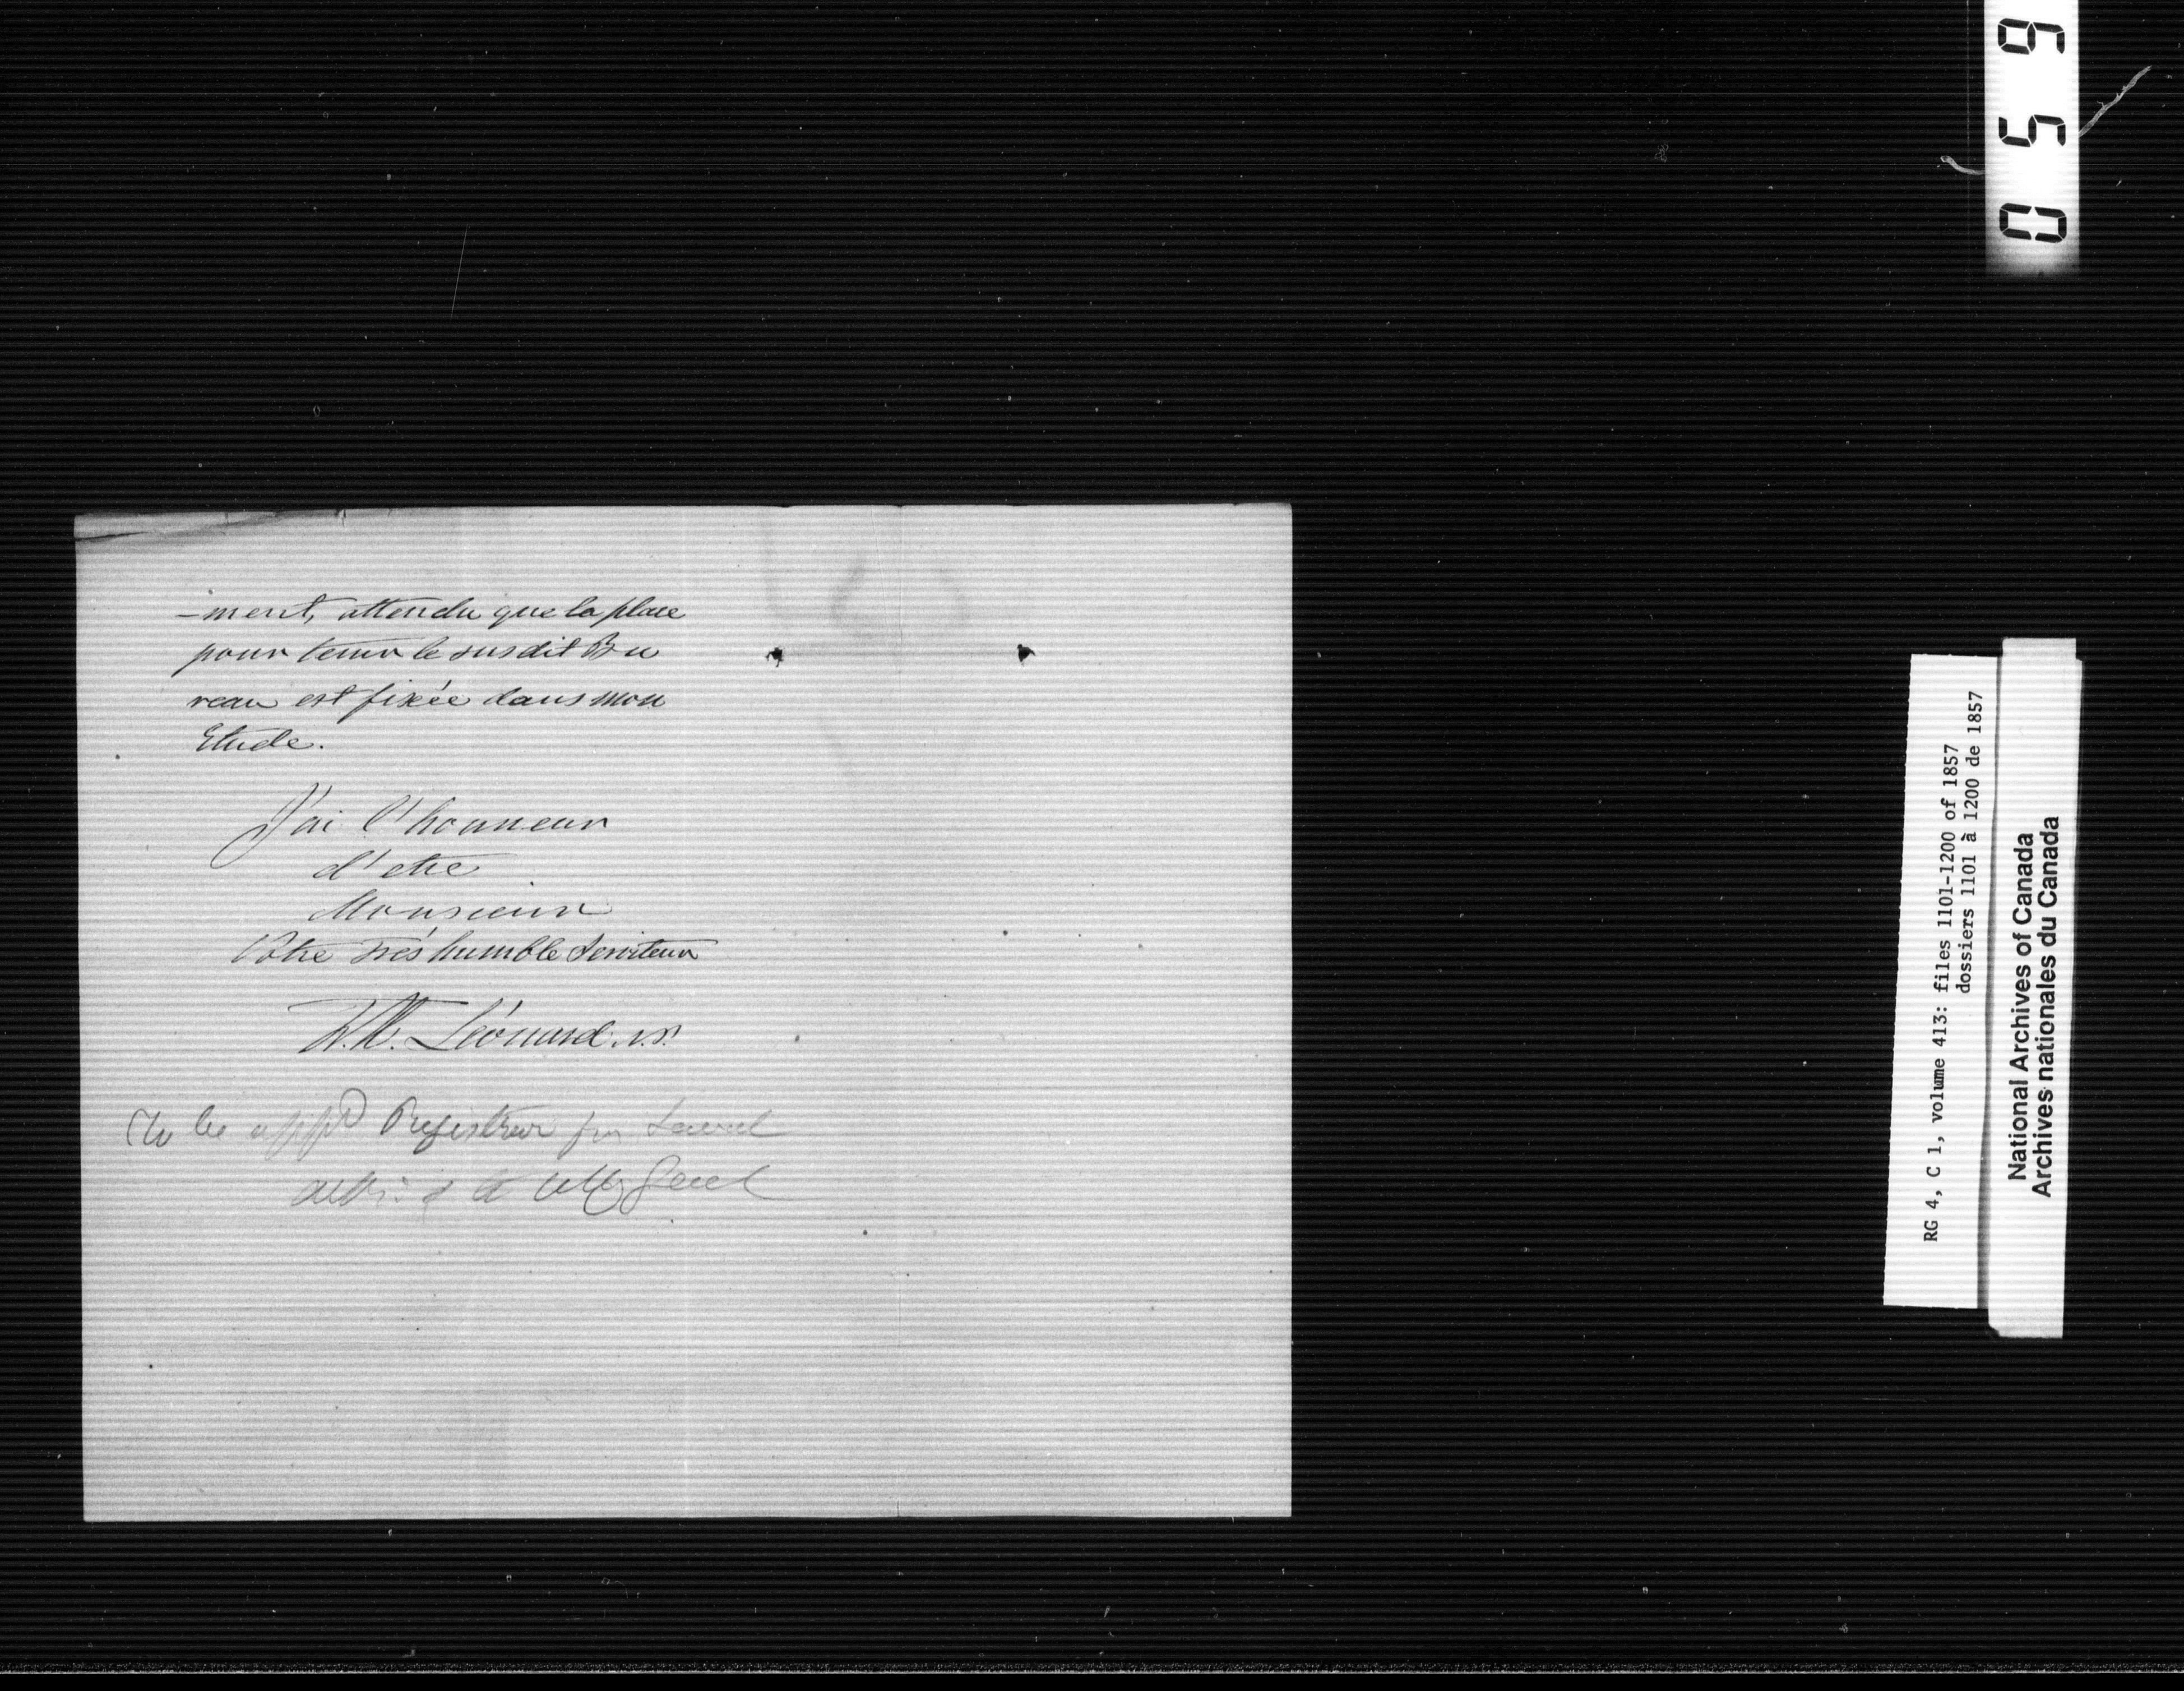 -ment, attendu que la place
pour tenir le susdit Bu
reau est fixée dans mon
Etude.
J'ai l'honneur
d'etre
Monsieur
Votre très humble Serviteur
Léonard. N.P.
To be appd Registrar for Laval
Atty Genl
059
RG 4, C 1, volume 413: files 1101-1200 of 1857
dossiers 1101 à 1200 de 1857
National Archives of Canada
Archives nationales du Canada